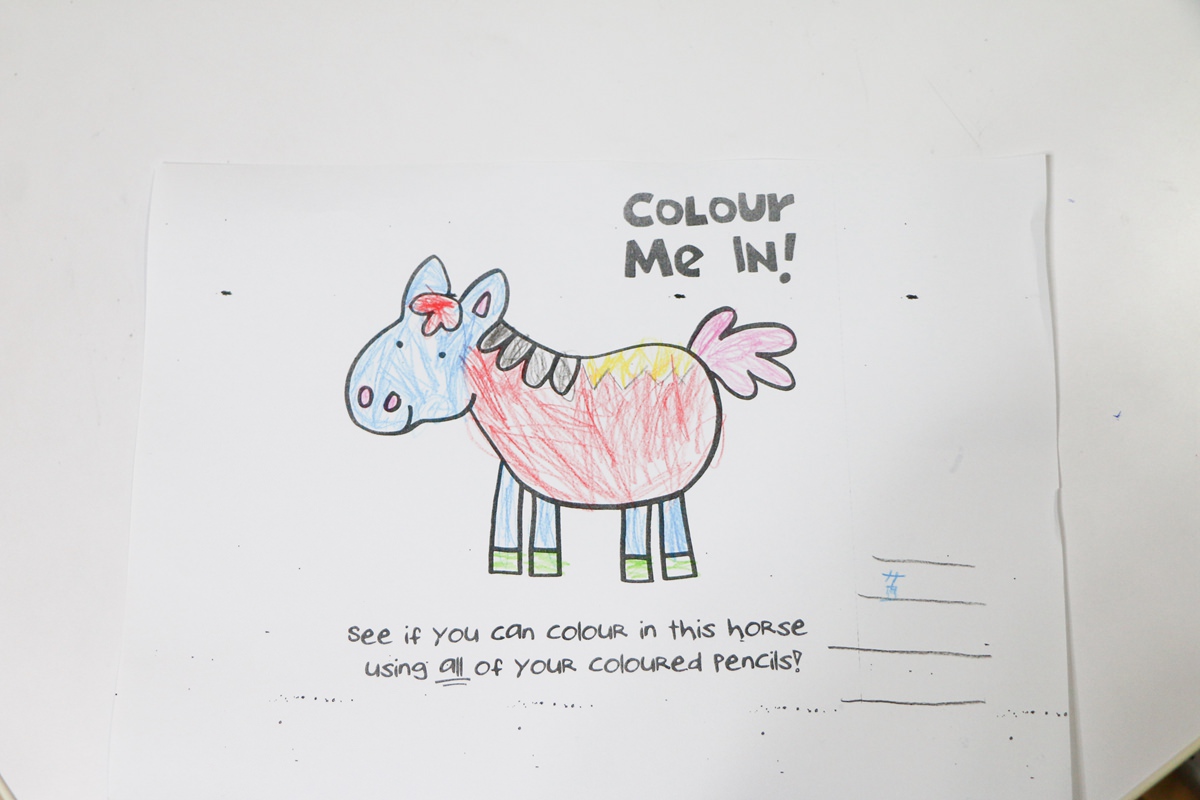 COLOUr
Me IN!
See if you can colour in this horse
using all of your coloured pencils!